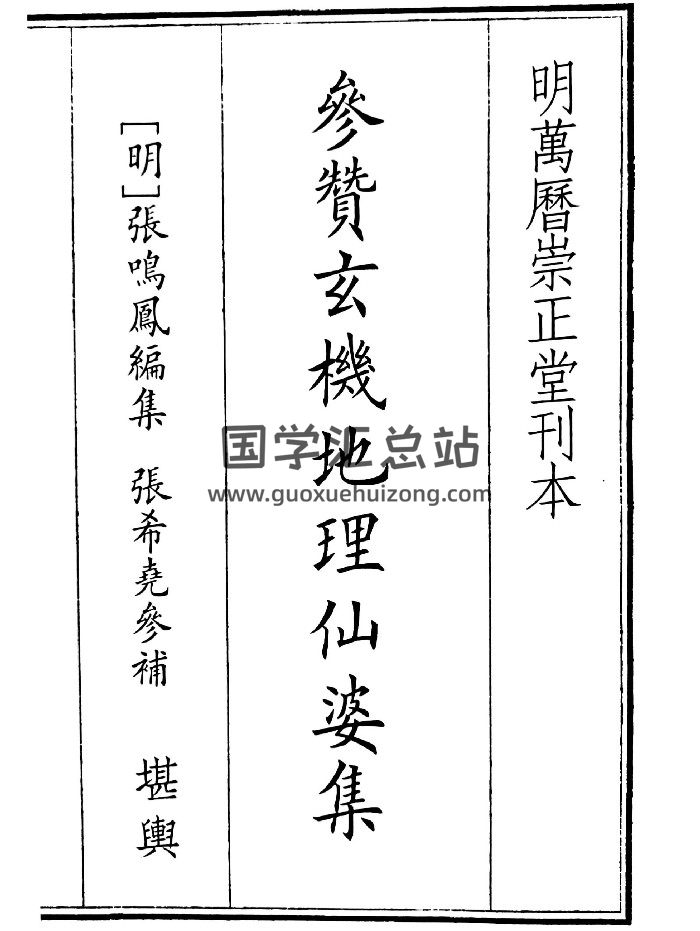 明萬曆崇正堂刊本
參贊玄機地理仙婆集
[明]張鳴鳳編集 張希堯參補 堪輿
国学汇总站
www.guoxuehuizong.com